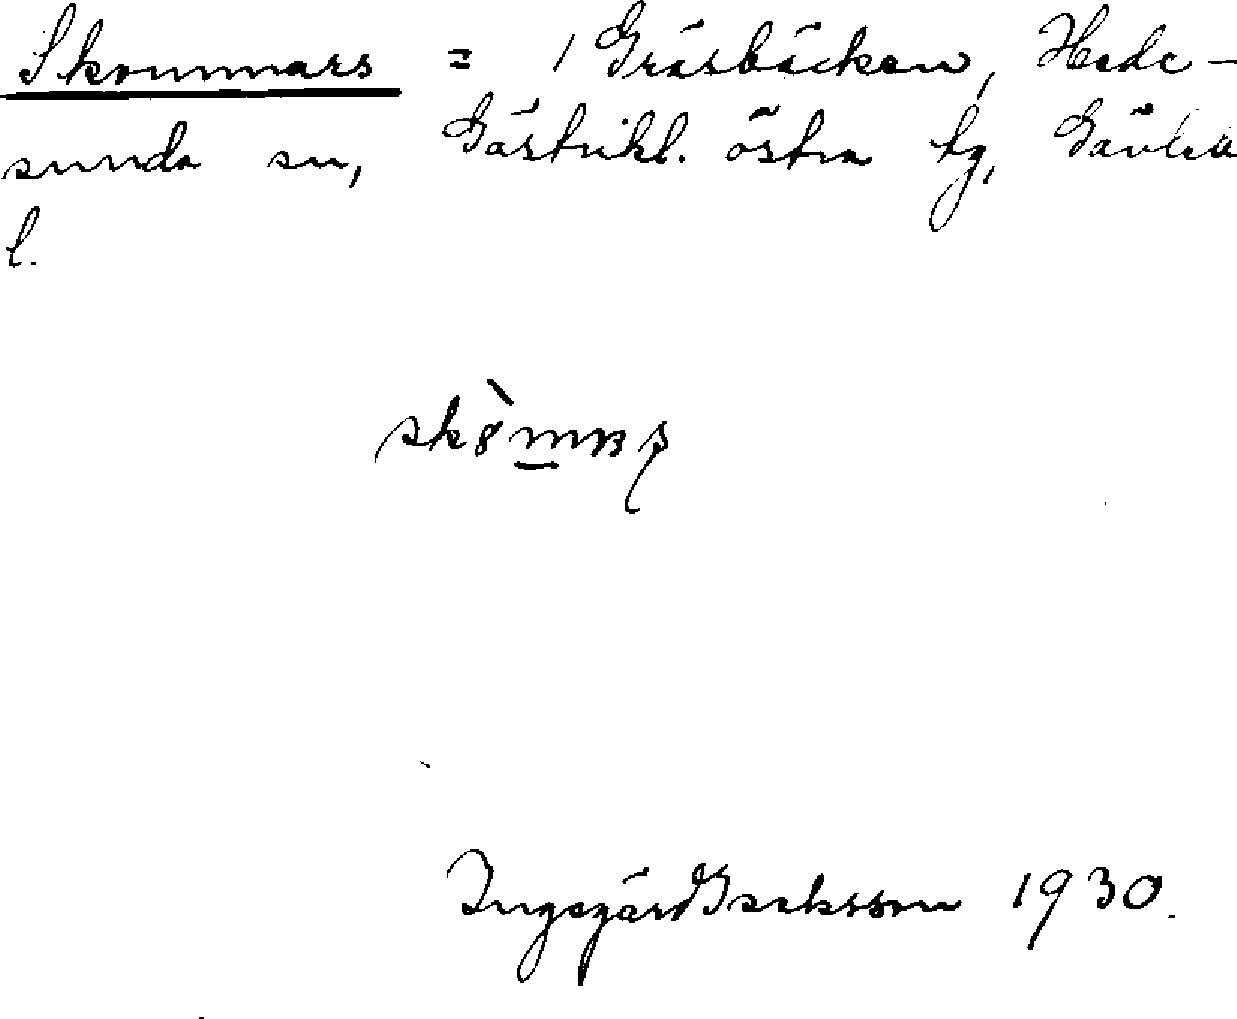 Skommars = 1 Gräsbäcken, Hede-
sunda sn, Gästrikl. östra tg, Gävleb
l.
Ingegärd Isaksson 1930.